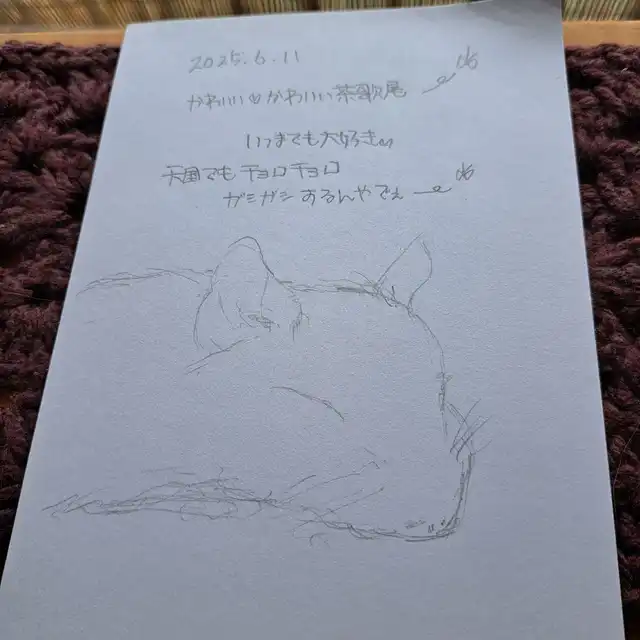 2025.6.11
かわいいかわいい茶歌尾
いつまでも大好き
天国でもチョロチョロ
ガシガシするんやでぇ